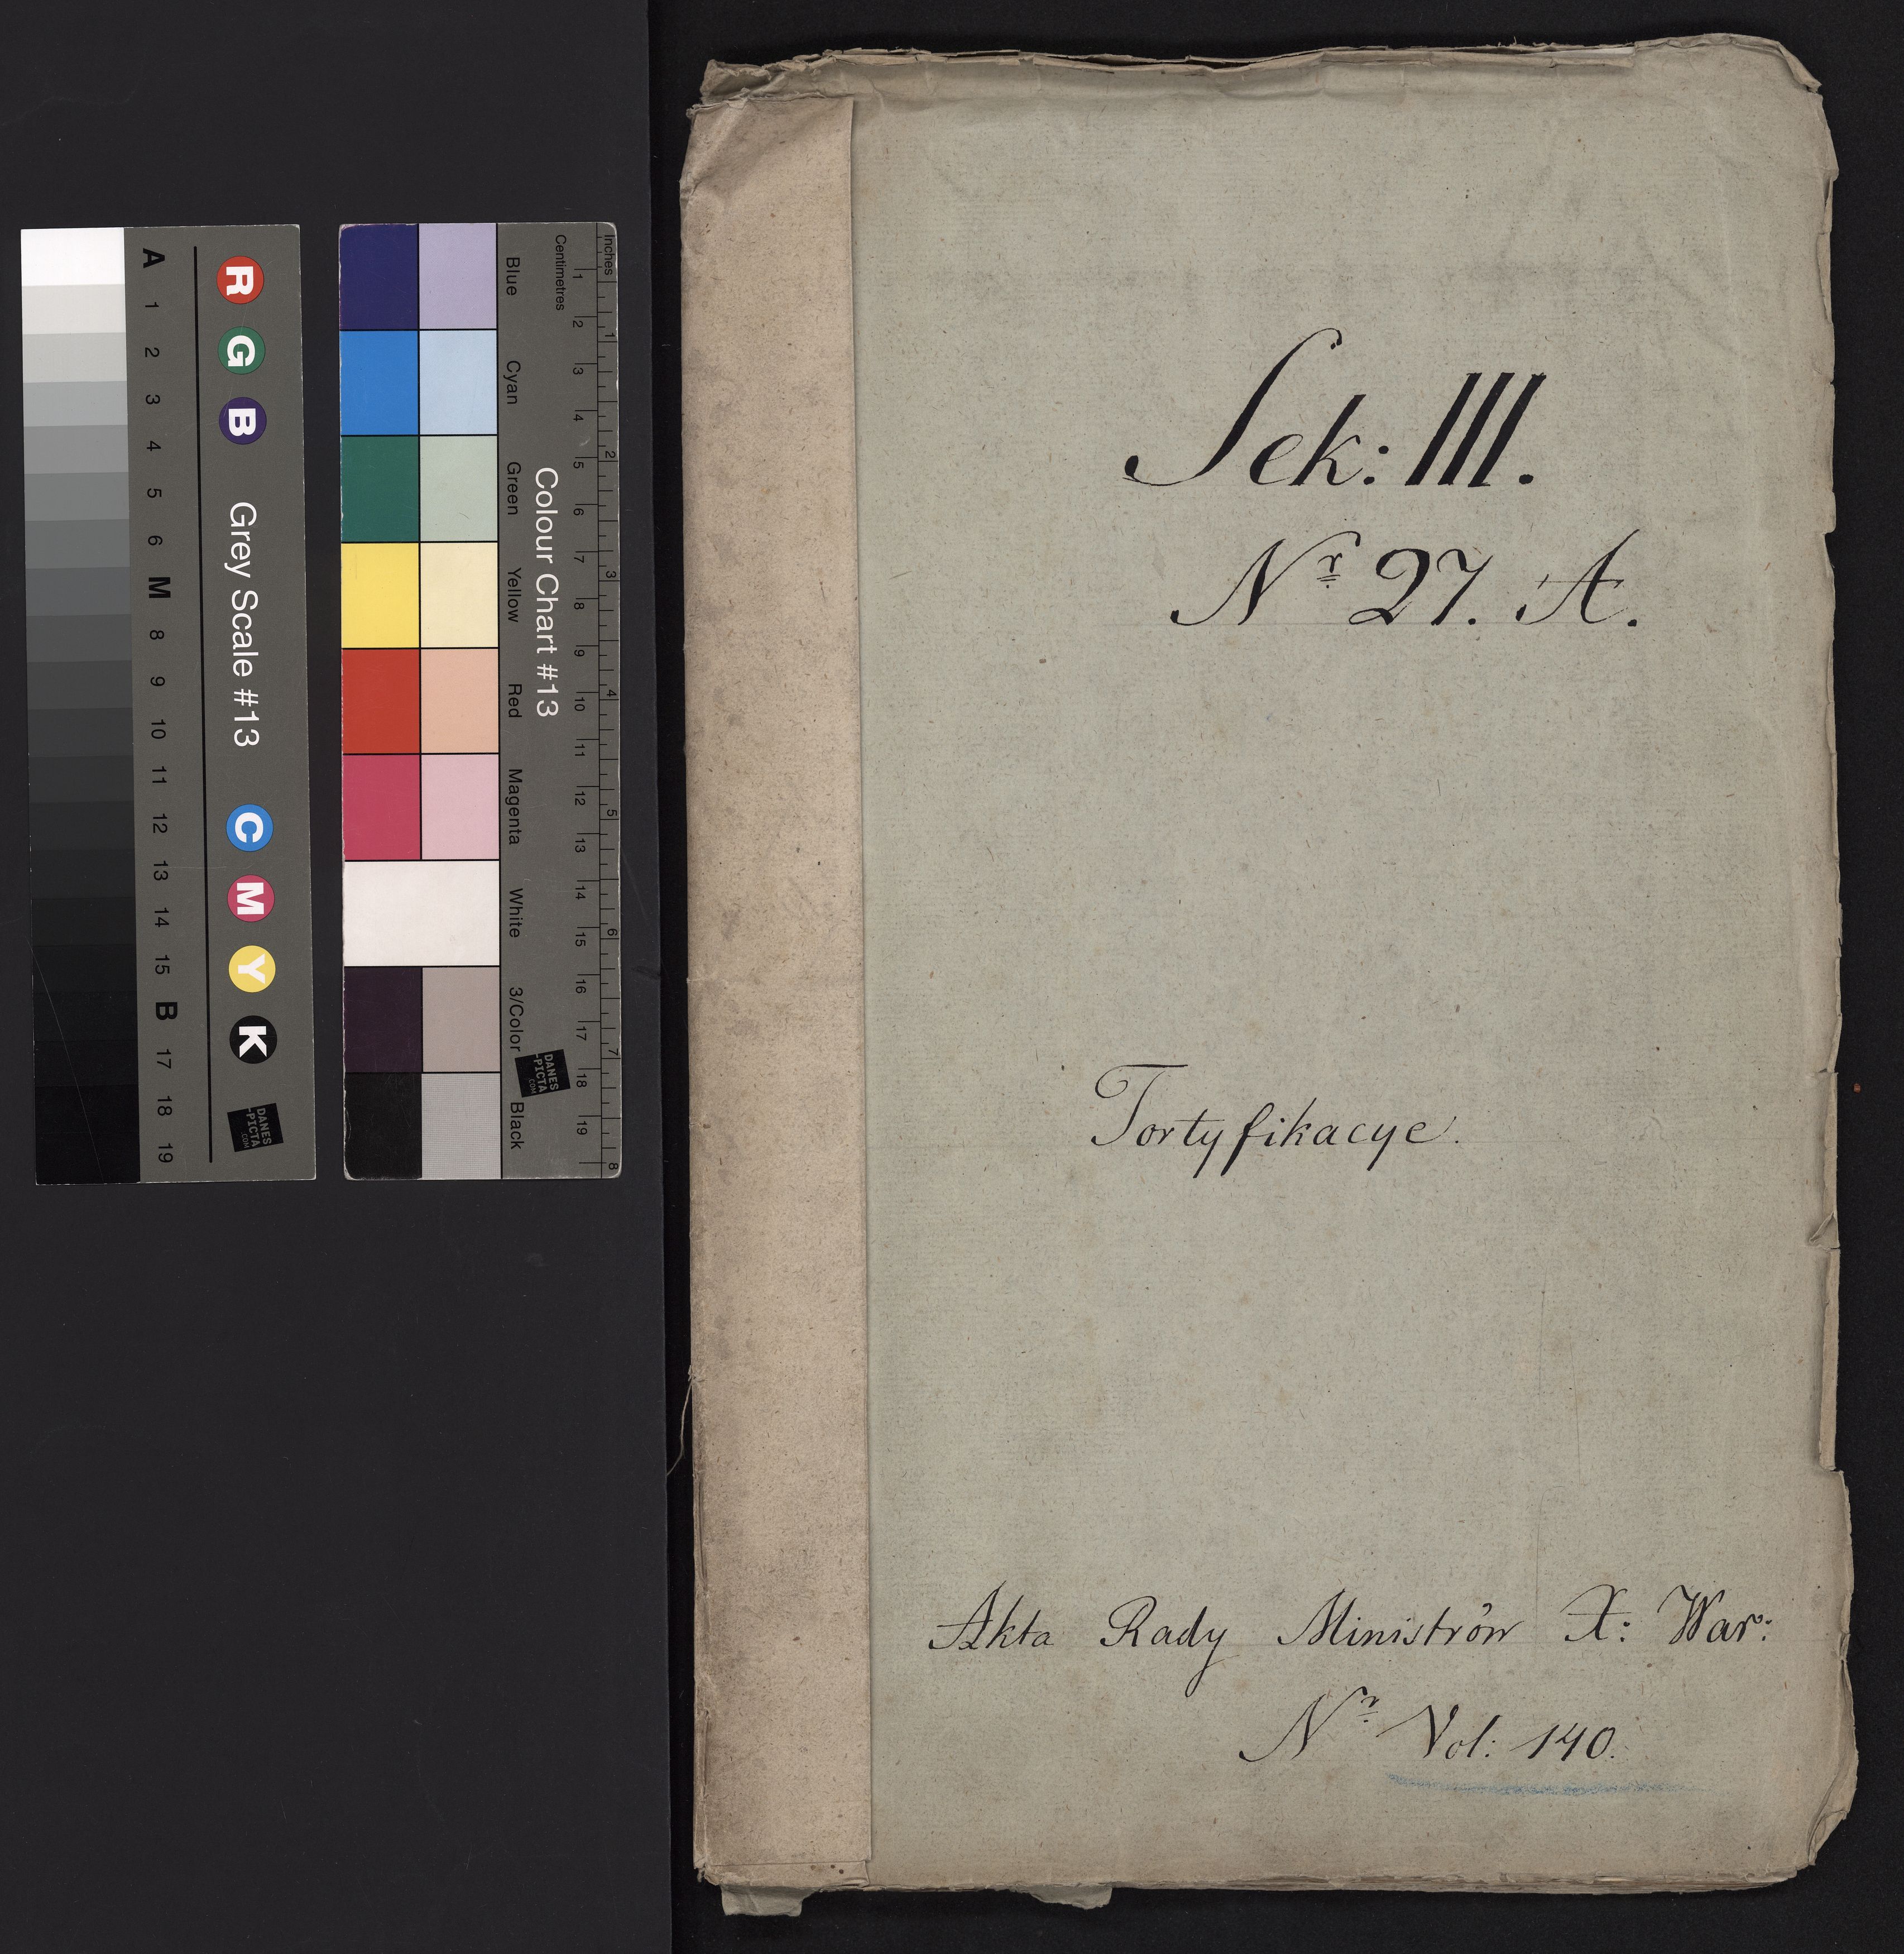 Sek: III.
Nr 27. A.
Fortyfikacye.
Akta Rady Ministrów X: War:
Nr Vol: 140.
A 1 2 3 4 5 6 M 8 9 10 11 12 13 14 15 B 17 18 19
R G B Grey Scale #13 C M Y K
DANES
-PICTA
.COM
Blue Cyan Green Yellow Red Magenta White 3/Color Black
Colour Chart #13
DANES
-PICTA
.COM
Centimetres 1 2 3 4 5 6 7 8 9 10 11 12 13 14 15 16 17 18 19
Inches 1 2 3 4 5 6 7 8